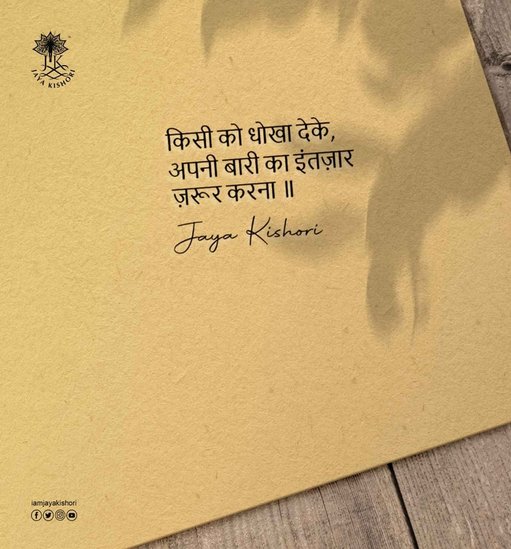 JAYA KISHORI
किसी को धोखा देके,
अपनी बारी का इंतज़ार
ज़रूर करना ॥
Jaya Kishori
iamjayakishori